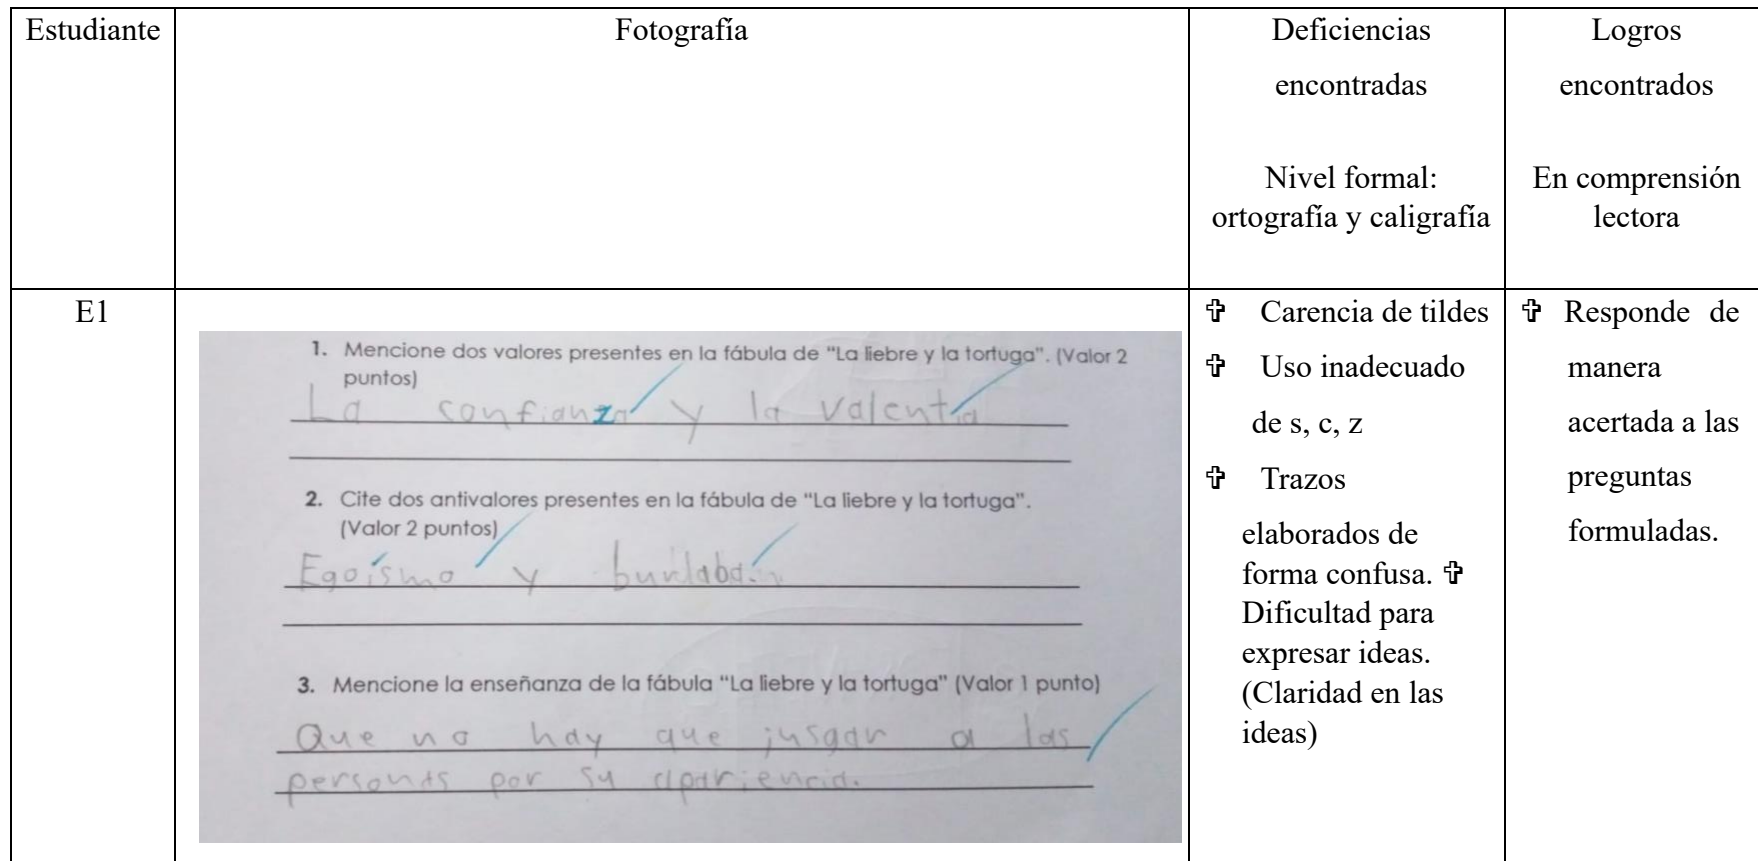 Estudiante
Fotografía
Deficiencias
encontradas
Nivel formal:
ortografía y caligrafía
Logros
encontrados
En comprensión
lectora
E1
1. Mencione dos valores presentes en la fábula de "La liebre y la tortuga". (Valor 2
puntos)
La confianza y la valentia
2. Cite dos antivalores presentes en la fábula de "La liebre y la tortuga".
(Valor 2 puntos)
Egoísmo y
3. Mencione la enseñanza de la fábula "La liebre y la tortuga" (Valor 1 punto)
Que no hay que jusgar a las
personas por su apariencia.
✞ Carencia de tildes
✞ Uso inadecuado
de s, c, z
✞ Trazos
elaborados de
forma confusa. ✞
Dificultad para
expresar ideas.
(Claridad en las
ideas)
✞ Responde de
manera
acertada a las
preguntas
formuladas.